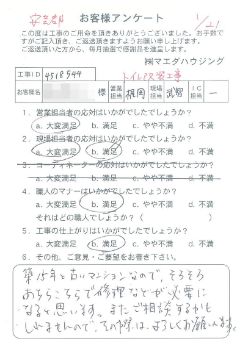 お客様アンケート 1/21
この度は工事のご用命を頂きありがとうございました。お手数で
すがご記入頂き、ご返送頂きますようお願い申し上げます。
ご返送頂いた方から、毎月抽選で感謝品を進呈します。
㈱マエダハウジング
工事ID 4518544 トイレ取替工事
お客様名 様 営業担当 梶岡 現場担当 武智 IC担当 ー
1. 営業担当者の応対はいかがでしたでしょうか?
a. 大変満足 b. 満足 c. やや不満 d. 不満
2. 現場担当者の応対はいかがでしたでしょうか?
a. 大変満足 b. 満足 c. やや不満 d. 不満
3. コーディネーターの応対はいかがでしたでしょうか?
a. 大変満足 b. 満足 c. やや不満 d. 不満
4. 職人のマナーはいかがでしたでしょうか?
a. 大変満足 b. 満足 c. やや不満 d. 不満
それはどの職人でしょうか? ( )
5. 工事の仕上がりはいかがでしたでしょうか?
a. 大変満足 b. 満足 c. やや不満 d. 不満
6. その他、ご意見・ご要望をお書き下さい。
築15年と古いマンションなので、そろそろ
あちらこちらで修理などが必要に
なると思います。またご相談するかも
しれませんので、その際は、よろしくお願いします。